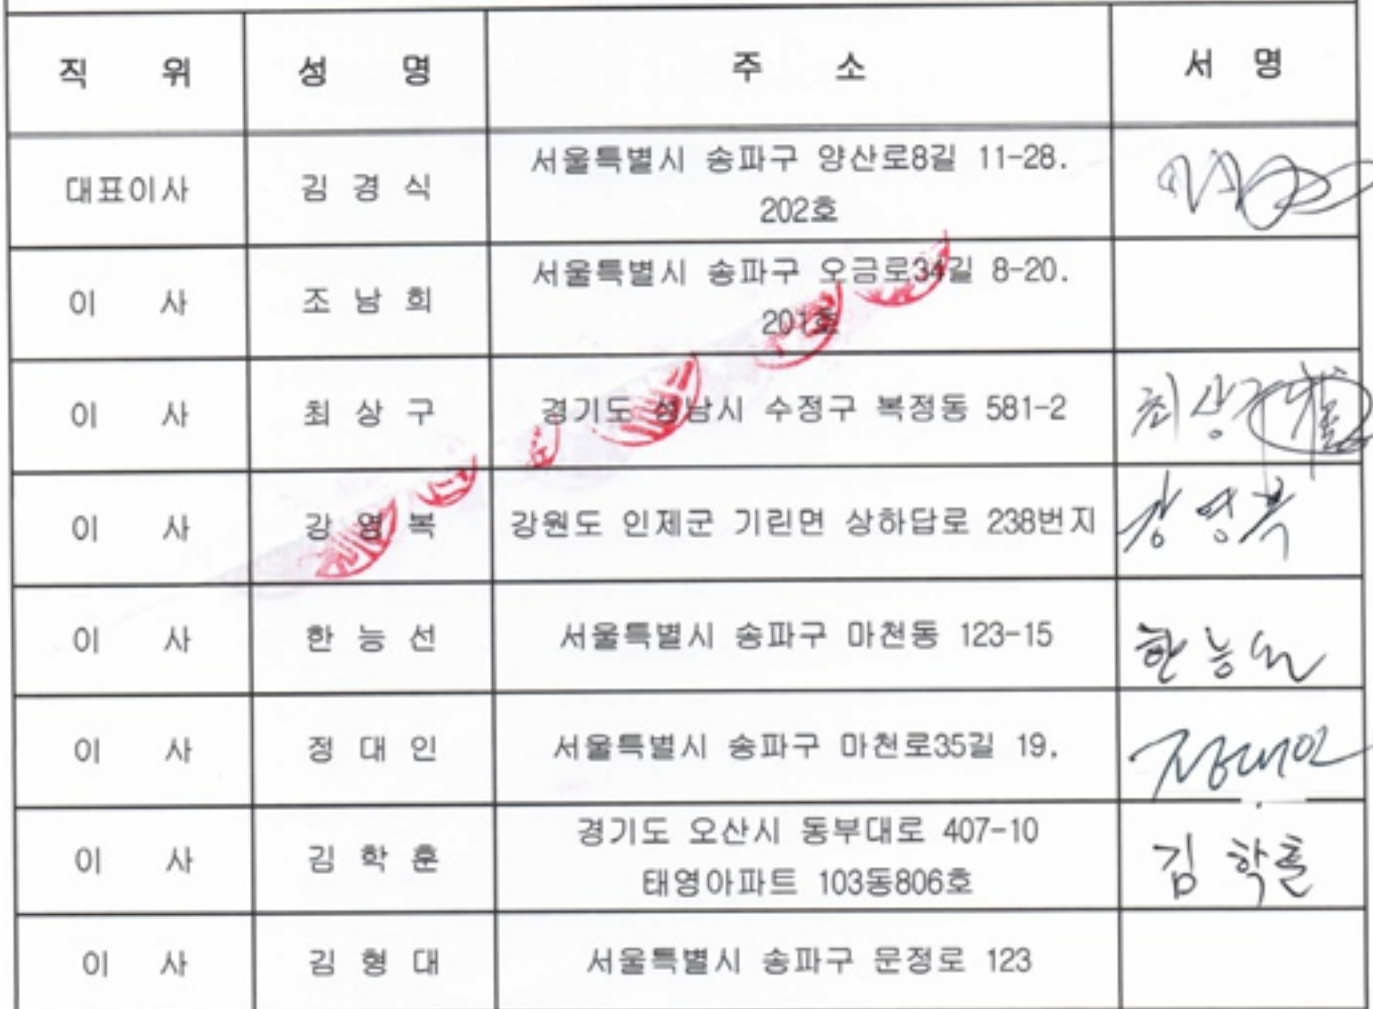 직 위 성 명 주 소 서 명
대표이사 김 경 식 서울특별시 송파구 양산로8길 11-28.
202호
이 사 조 남 희 서울특별시 송파구 오금로34길 8-20.
201호
이 사 최 상 구 경기도 성남시 수정구 복정동 581-2 최상구
이 사 강 영 복 강원도 인제군 기린면 상하답로 238번지 강영복
이 사 한 능 선 서울특별시 송파구 마천동 123-15 한능선
이 사 정 대 인 서울특별시 송파구 마천로35길 19. 정대인
이 사 김 학 훈 경기도 오산시 동부대로 407-10 김학훈
태영아파트 103동806호
이 사 김 형 대 서울특별시 송파구 문정로 123